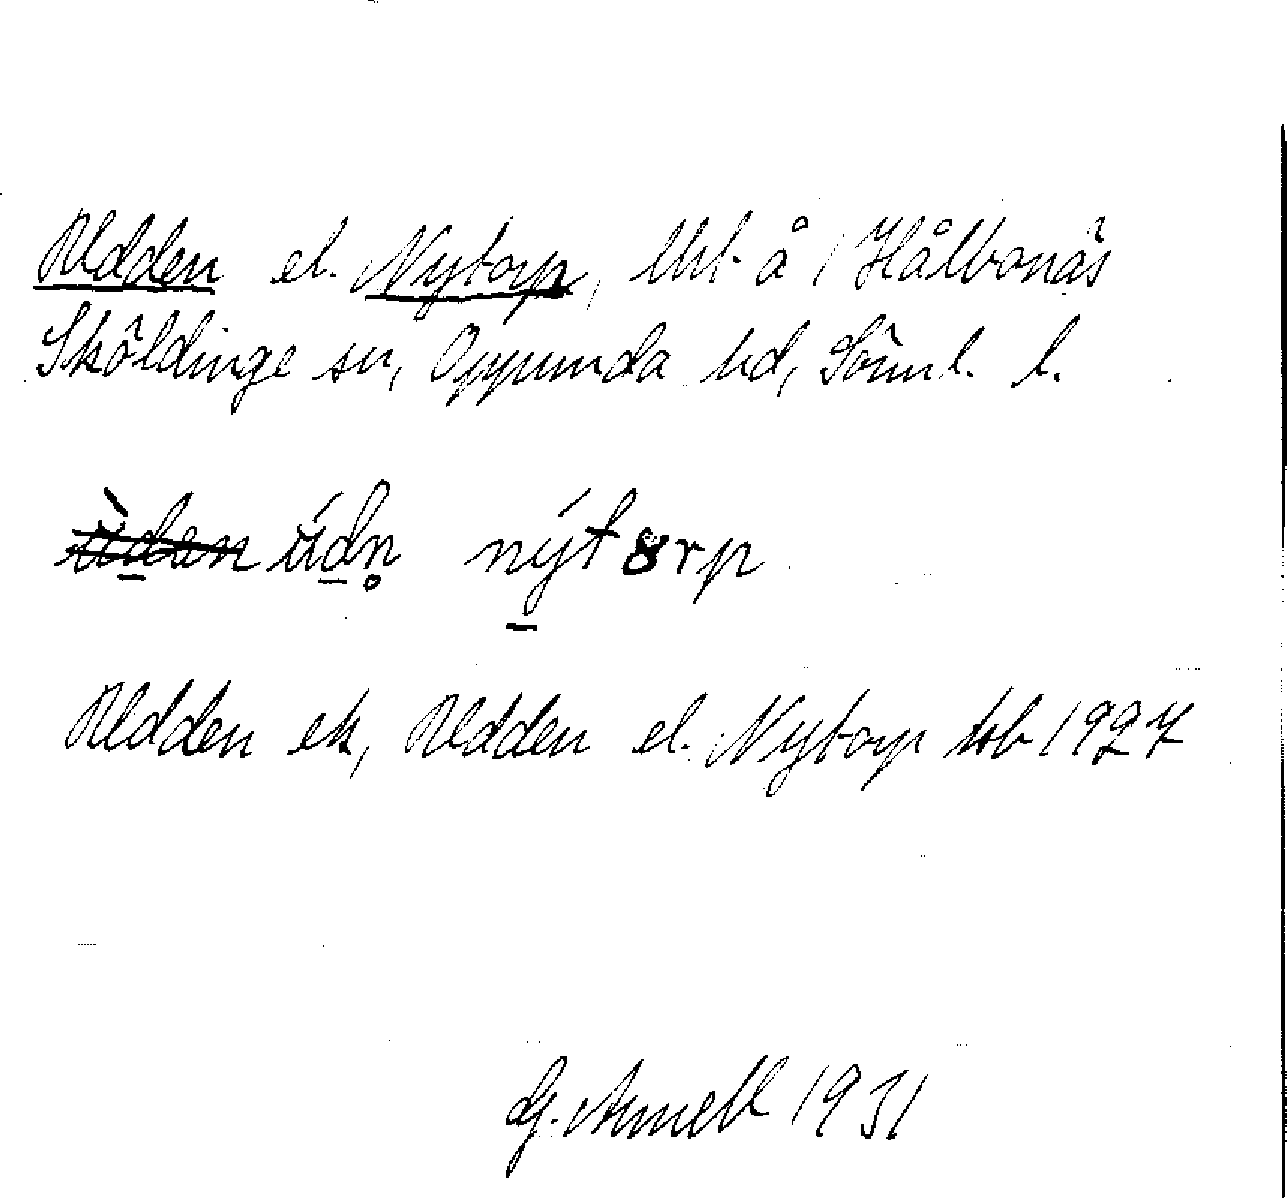 Udden el. Nytorp, lht å 1 Hålbonäs
Sköldinge sn, Oppunda hd, Sörml. l.
ùden údn̥ nýtȣrp
Udden ek, Udden el. Nytorp jsb 1927
G. Arnell 1931